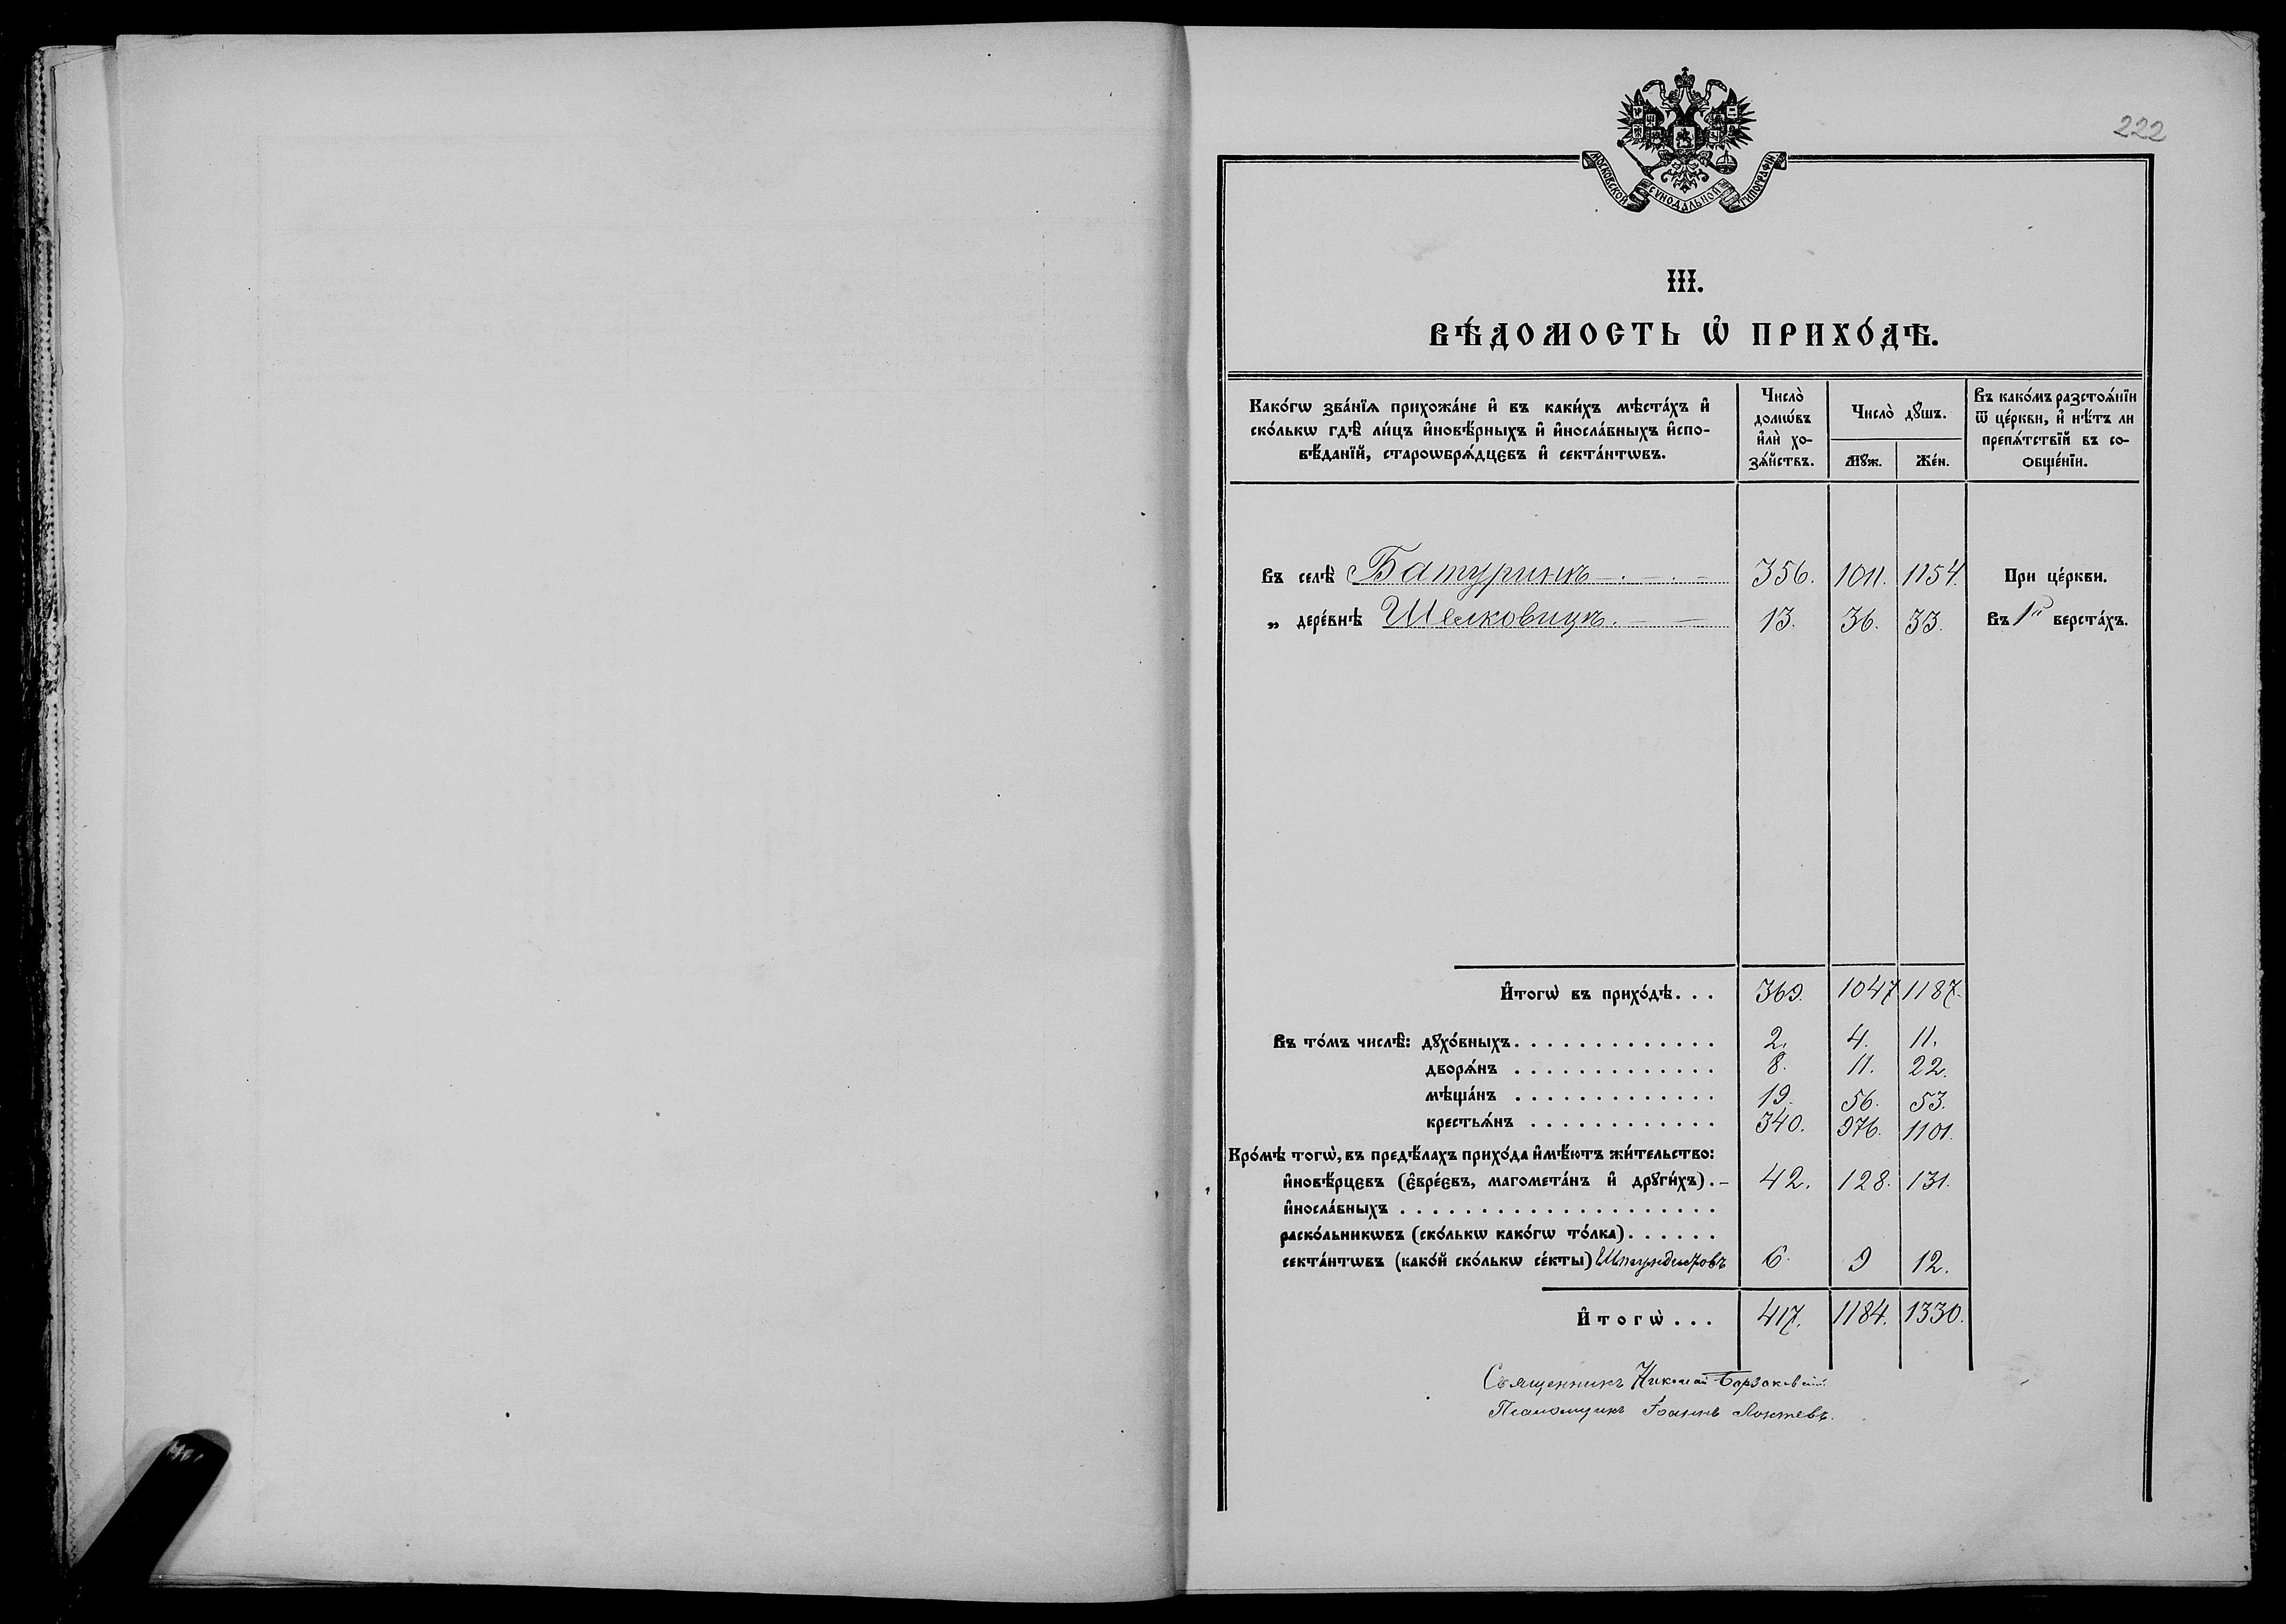 222
МОСКОВСКОЙ СѴНОДАЛЬНОЙ ТИПОГРАФІИ
III.
ВѢ́ДОМОСТЬ Ѡ҆ ПРИХО́ДѢ.
Како́гѡ зва́нїѧ прихожа́не и҆ въ каки́хъ мѣста́хъ и҆
ско́лькѡ гдѣ̀ ли́цъ и҆новѣ́рныхъ и҆ и҆носла́вныхъ и҆спо-
вѣ́данїй, староѡбрѧ́дцєвъ и҆ секта́нтѡвъ.
Число̀
домѡ́въ
и҆лѝ хо-
зѧ́йствъ.
Число̀ дꙋ́шъ.
Мꙋ́ж.
Же́н.
Въ како́мъ разстоѧ́нїи
ѿ це́ркви, и҆ нѣ́тъ ли
препѧ́тствїй въ со-
ѻбще́нїи.
Въ селѣ̀ Батуринѣ 356. 1011. 1154. При це́ркви.
„ дере́внѣ Шелковицѣ. 13. 36. 33. Въ 1й верста́хъ.
И҆тогѡ̀ въ прихо́дѣ... 369. 1047 1187.
Въ то́мъ числѣ̀: дꙋхо́вныхъ. 2. 4. 11.
дворѧ́нъ 8. 11. 22.
мѣща́нъ 19. 56. 53.
крестьѧ́нъ 340. 976. 1101.
Кро́мѣ тогѡ̀, въ предѣ́лахъ прихо́да и҆мѣ́ютъ жи́тельство:
и҆новѣ́рцєвъ (є҆вре́євъ, магомета́нъ и҆ дрꙋги́хъ). 42. 128. 131.
и҆носла́вныхъ
раско́льникѡвъ (ско́лькѡ како́гѡ то́лка)
секта́нтѡвъ (како́й ско́лькѡ се́кты) Штундистовъ 6. 9 12.
И҆тогѡ̀... 417. 1184. 1330.
Священникъ Николай Барзаковскій
Псаломщикъ Іоаннъ Локтевъ.